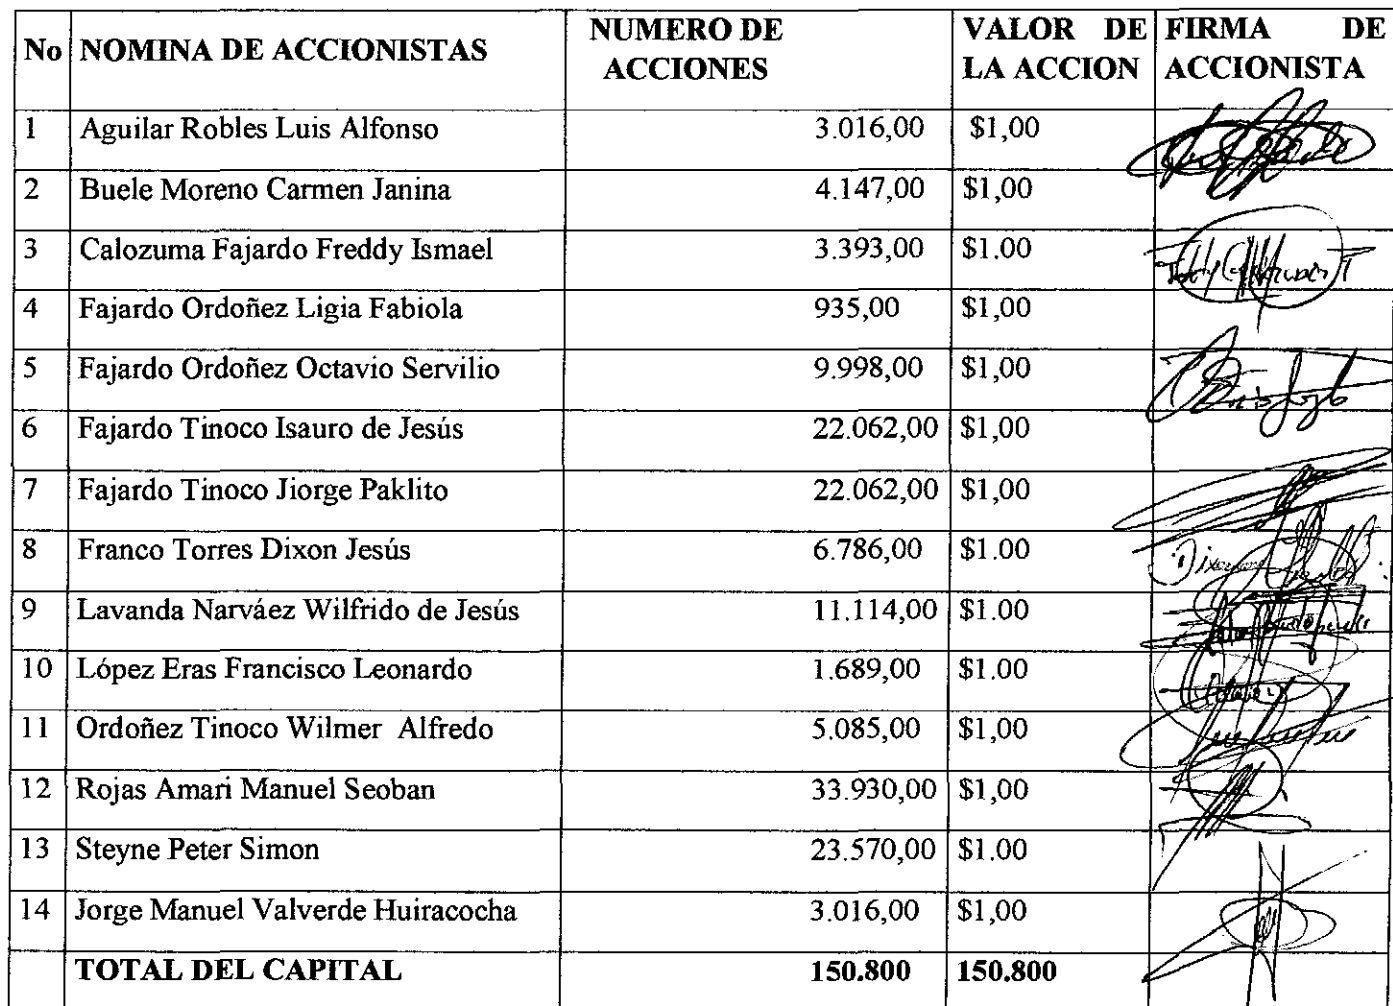 No NOMINA DE ACCIONISTAS NUMERO DE ACCIONES VALOR DE LA ACCION FIRMA DE ACCIONISTA
1 Aguilar Robles Luis Alfonso 3.016,00 $1,00
2 Buele Moreno Carmen Janina 4.147,00 $1,00
3 Calozuma Fajardo Freddy Ismael 3.393,00 $1.00
4 Fajardo Ordoñez Ligia Fabiola 935,00 $1,00
5 Fajardo Ordoñez Octavio Servilio 9.998,00 $1,00
6 Fajardo Tinoco Isauro de Jesús 22.062,00 $1,00
7 Fajardo Tinoco Jiorge Paklito 22.062,00 $1,00
8 Franco Torres Dixon Jesús 6.786,00 $1.00
9 Lavanda Narváez Wilfrido de Jesús 11.114,00 $1.00
10 López Eras Francisco Leonardo 1.689,00 $1.00
11 Ordoñez Tinoco Wilmer Alfredo 5.085,00 $1,00
12 Rojas Amari Manuel Seoban 33.930,00 $1,00
13 Steyne Peter Simon 23.570,00 $1.00
14 Jorge Manuel Valverde Huiracocha 3.016,00 $1,00
TOTAL DEL CAPITAL 150.800 150.800